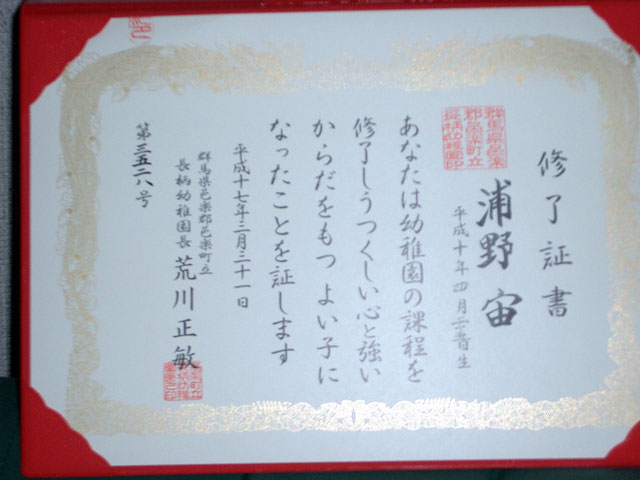 修了証書
浦野宙
平成十年四月二日生
あなたは幼稚園の課程を
修了しうつくしい心と強い
からだをもつよい子に
なったことを証します
平成十七年三月三十一日
群馬県邑楽郡邑楽町立
長柄幼稚園長 荒川正敏
第三五二八号
群馬県邑楽
郡邑楽町立
長柄幼稚園印